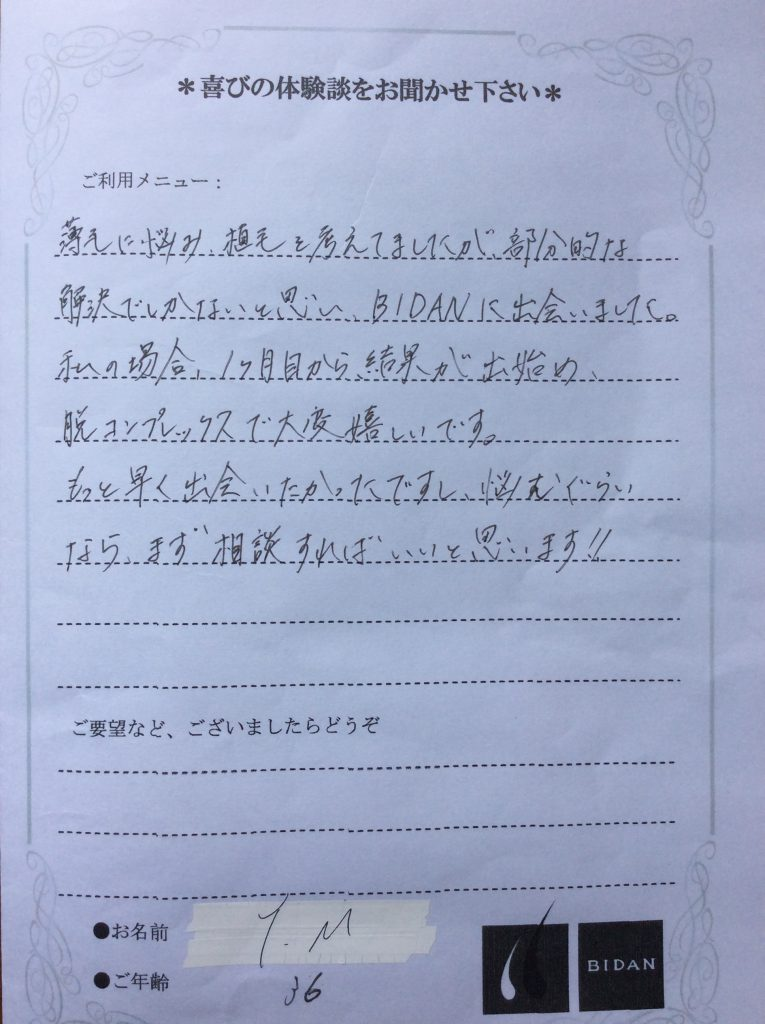 ＊喜びの体験談をお聞かせ下さい＊
ご利用メニュー：
薄毛に悩み、植毛を考えてましたが、部分的な
解決でしかないと思い、BIDANに出会いました。
私の場合、1ヶ月目から、結果が出始め、
脱コンプレックスで大変嬉しいです。
もっと早く出会いたかったですし、悩むぐらい
なら、まず相談すればいいと思います!!
ご要望など、ございましたらどうぞ
●お名前 T.M
●ご年齢 36
BIDAN